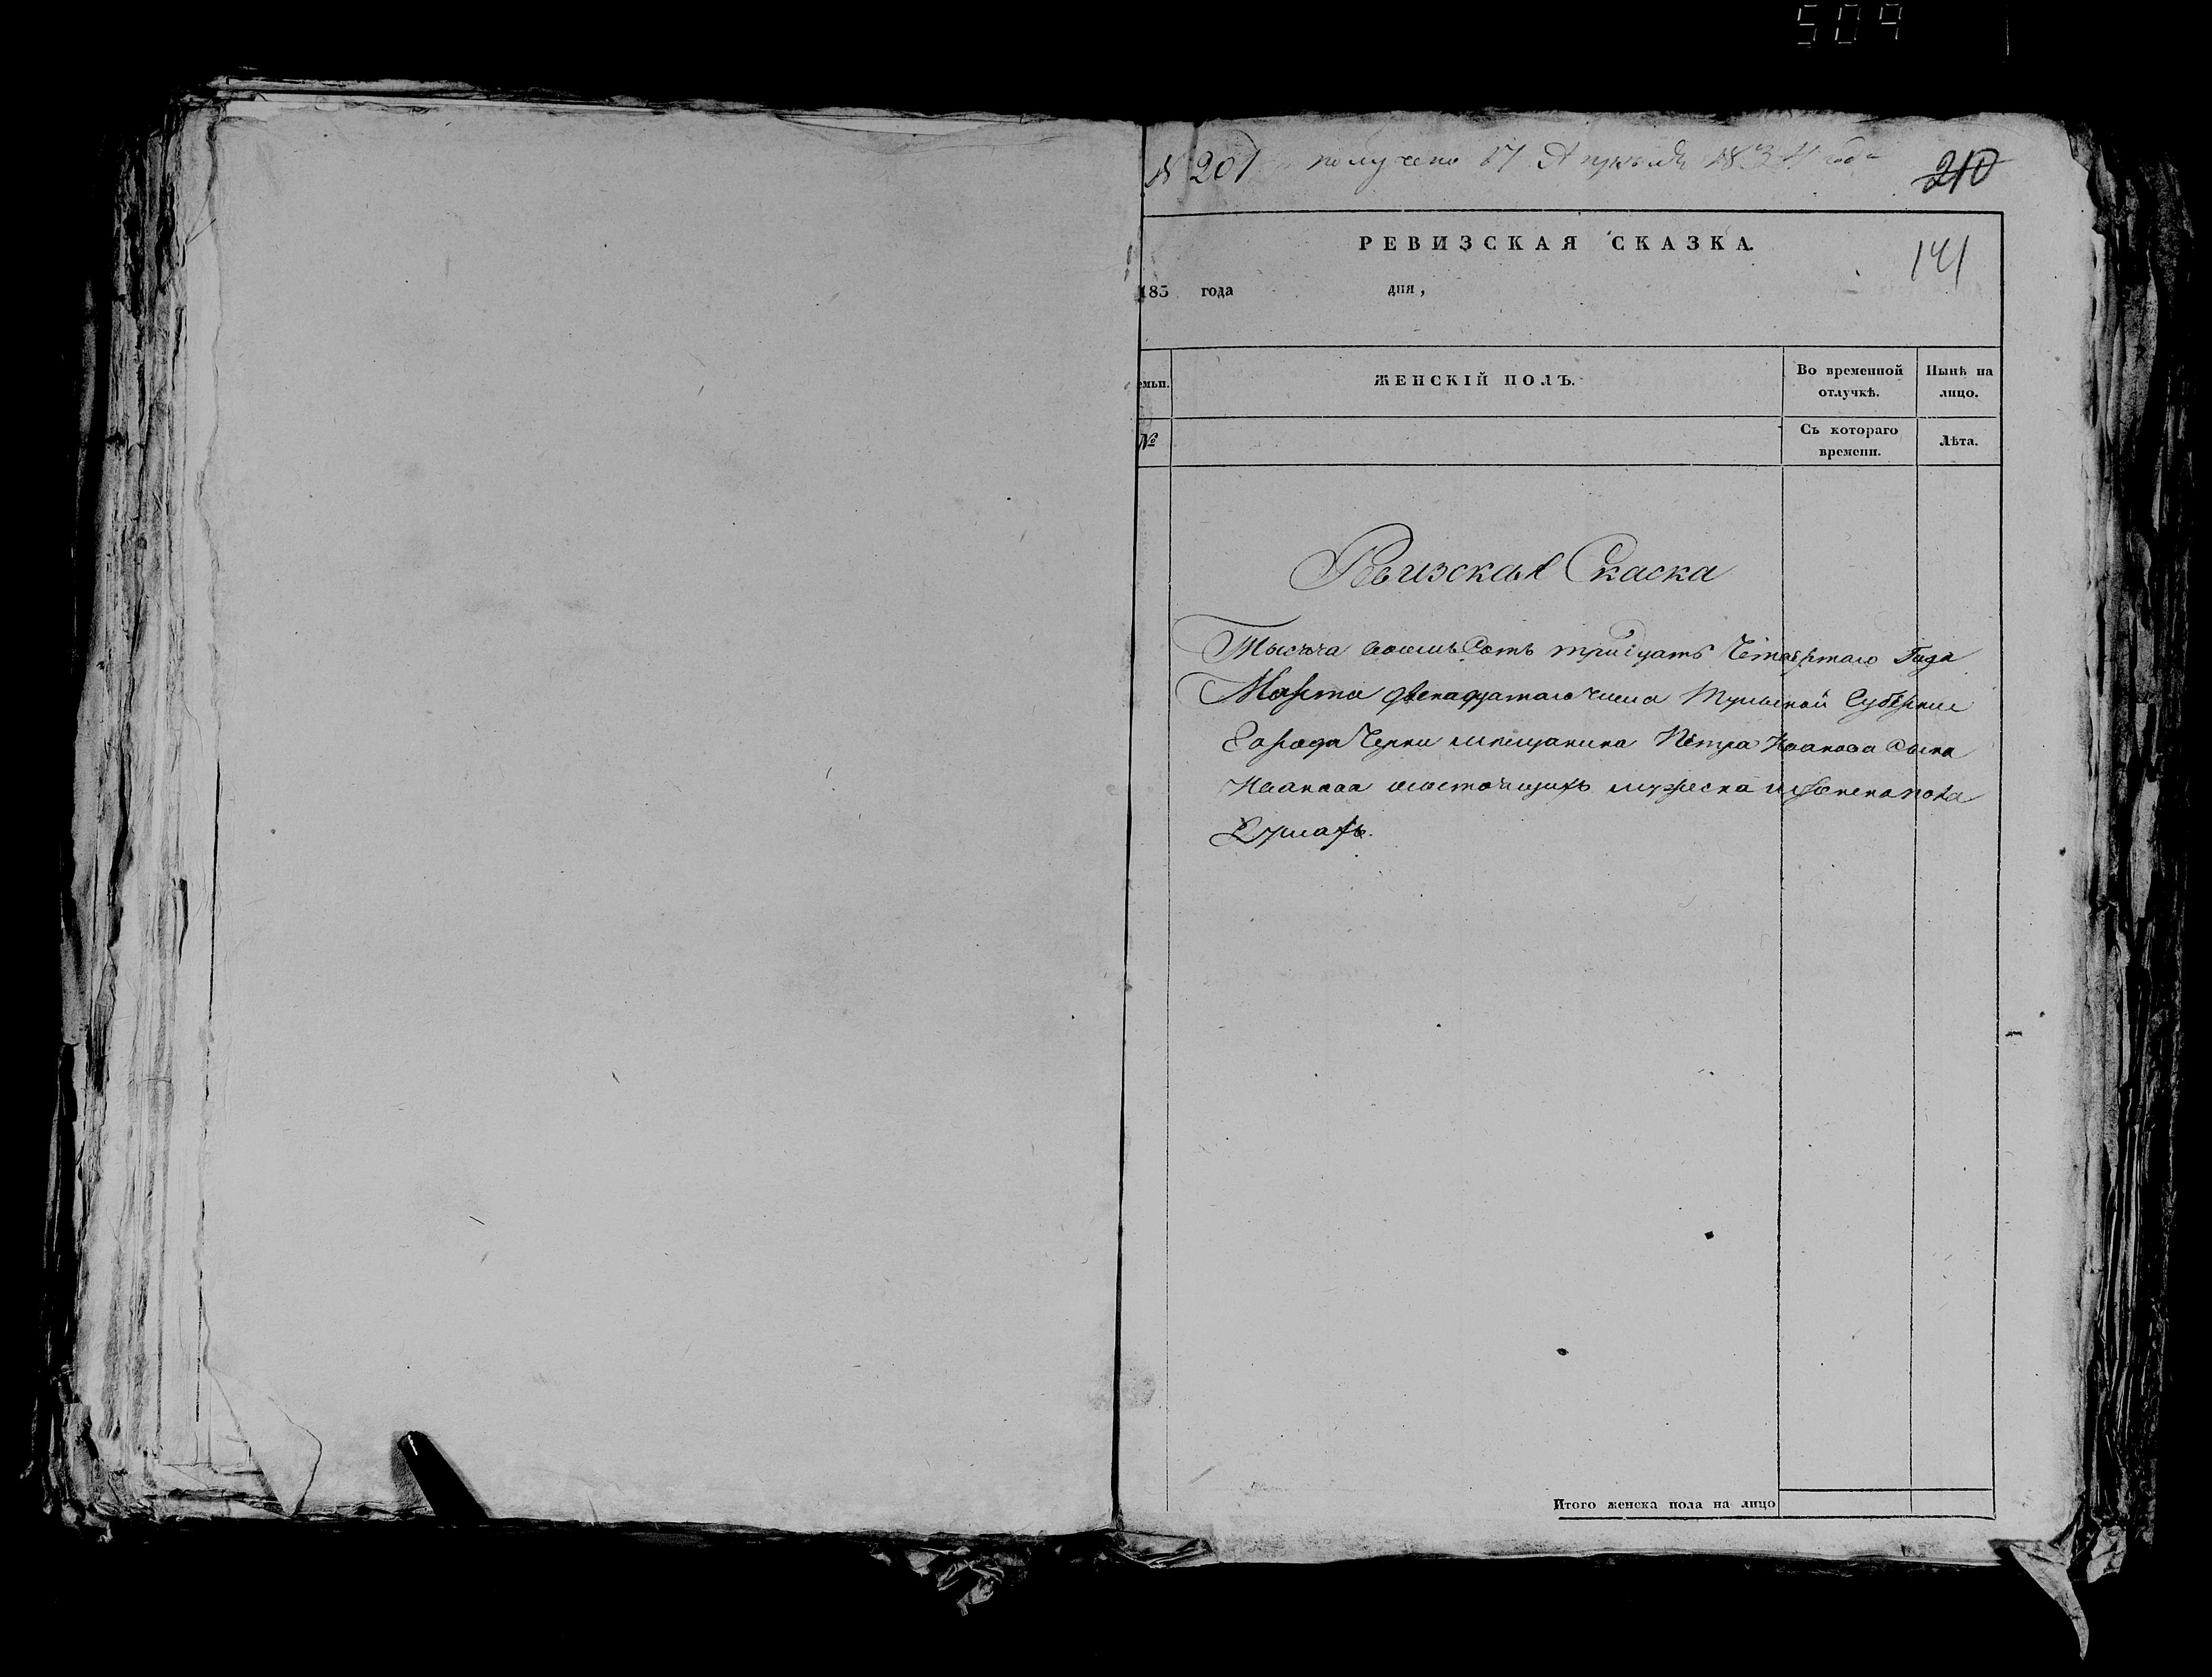 509
№ 201 получено 17 Апреля 1834 года
210
РЕВИЗСКАЯ СКАЗКА.
141
183 года дня,
емьи. ЖЕНСКІЙ ПОЛЪ. Во временной отлучкѣ. Нынѣ на лицо.
№ Съ котораго времени. Лѣта.
Ревизская Скаска
Тысеча восемь Сотъ тридцать Четвертаго Года
Марта двенадцатаго числа Тульской Губернии
Города Черни мещанина Петра Иванова Сына
Иванова состоящихъ мужеска и женска пола
Душахъ.
Итого женска пола на лицо